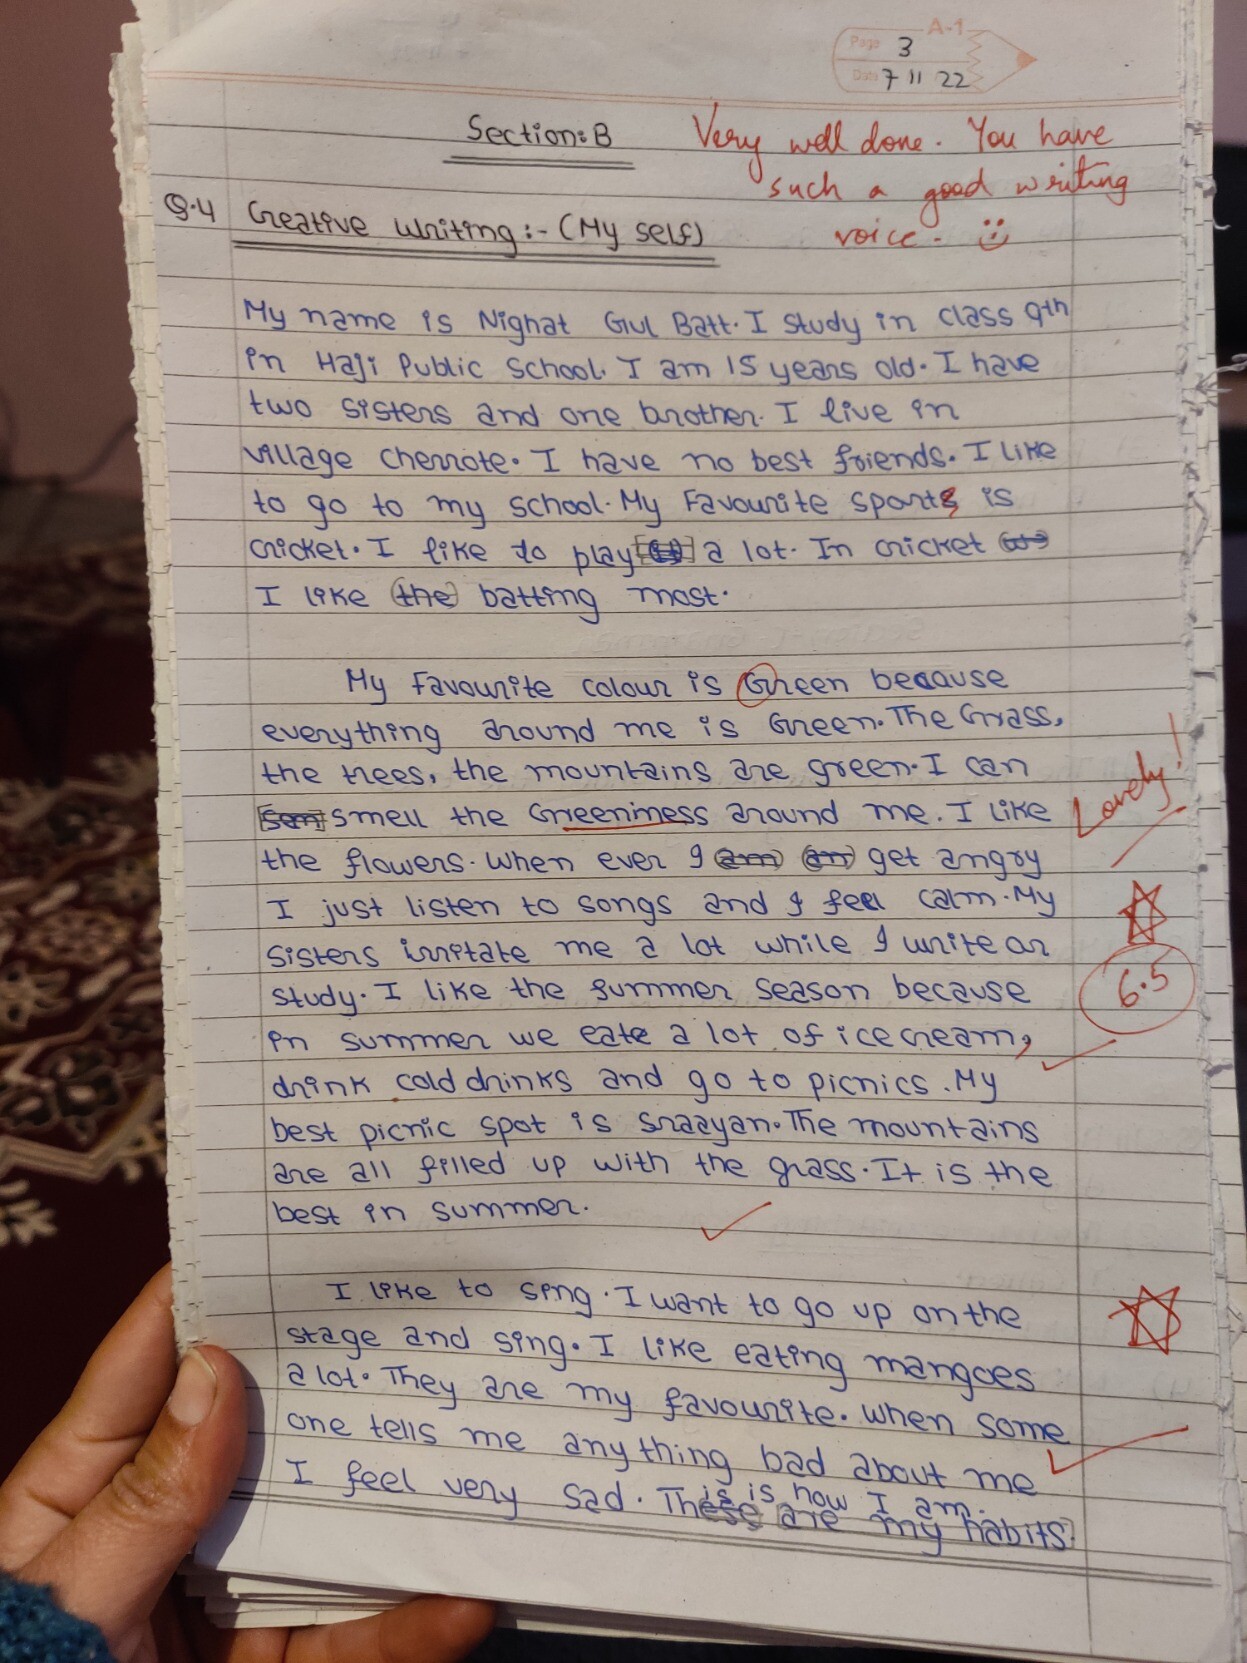 A-1
Page 3
Date 7 11 22
Section:B
Very well done. You have
such a good writing
voice.
Q.4 Creative Writing:- (My self)
My name is Nighat Gul Batt. I study in class 9th
in Haji Public School. I am 15 years old. I have
two sisters and one brother. I live in
village Cherrote. I have no best friends. I like
to go to my school. My Favourite sports is
cricket. I like to play a lot. In cricket
I like (the) batting most.
My favourite colour is Green because
everything around me is Green. The Grass,
the trees, the mountains are green. I can
smell the Greeniness around me. I like
Lovely!
the flowers. When ever I get angry
I just listen to songs and I feel calm. My
sisters irritate me a lot while I write or
study. I like the summer season because
6.5
in summer we eate a lot of ice cream,
drink cold drinks and go to picnics. My
best picnic spot is Sraayan. The mountains
are all filled up with the grass. It is the
best in summer.
I like to sing. I want to go up on the
stage and sing. I like eating mangoes
a lot. They are my favourite. When some
one tells me any thing bad about me
I feel very sad. This is how I am.
These are my habits.